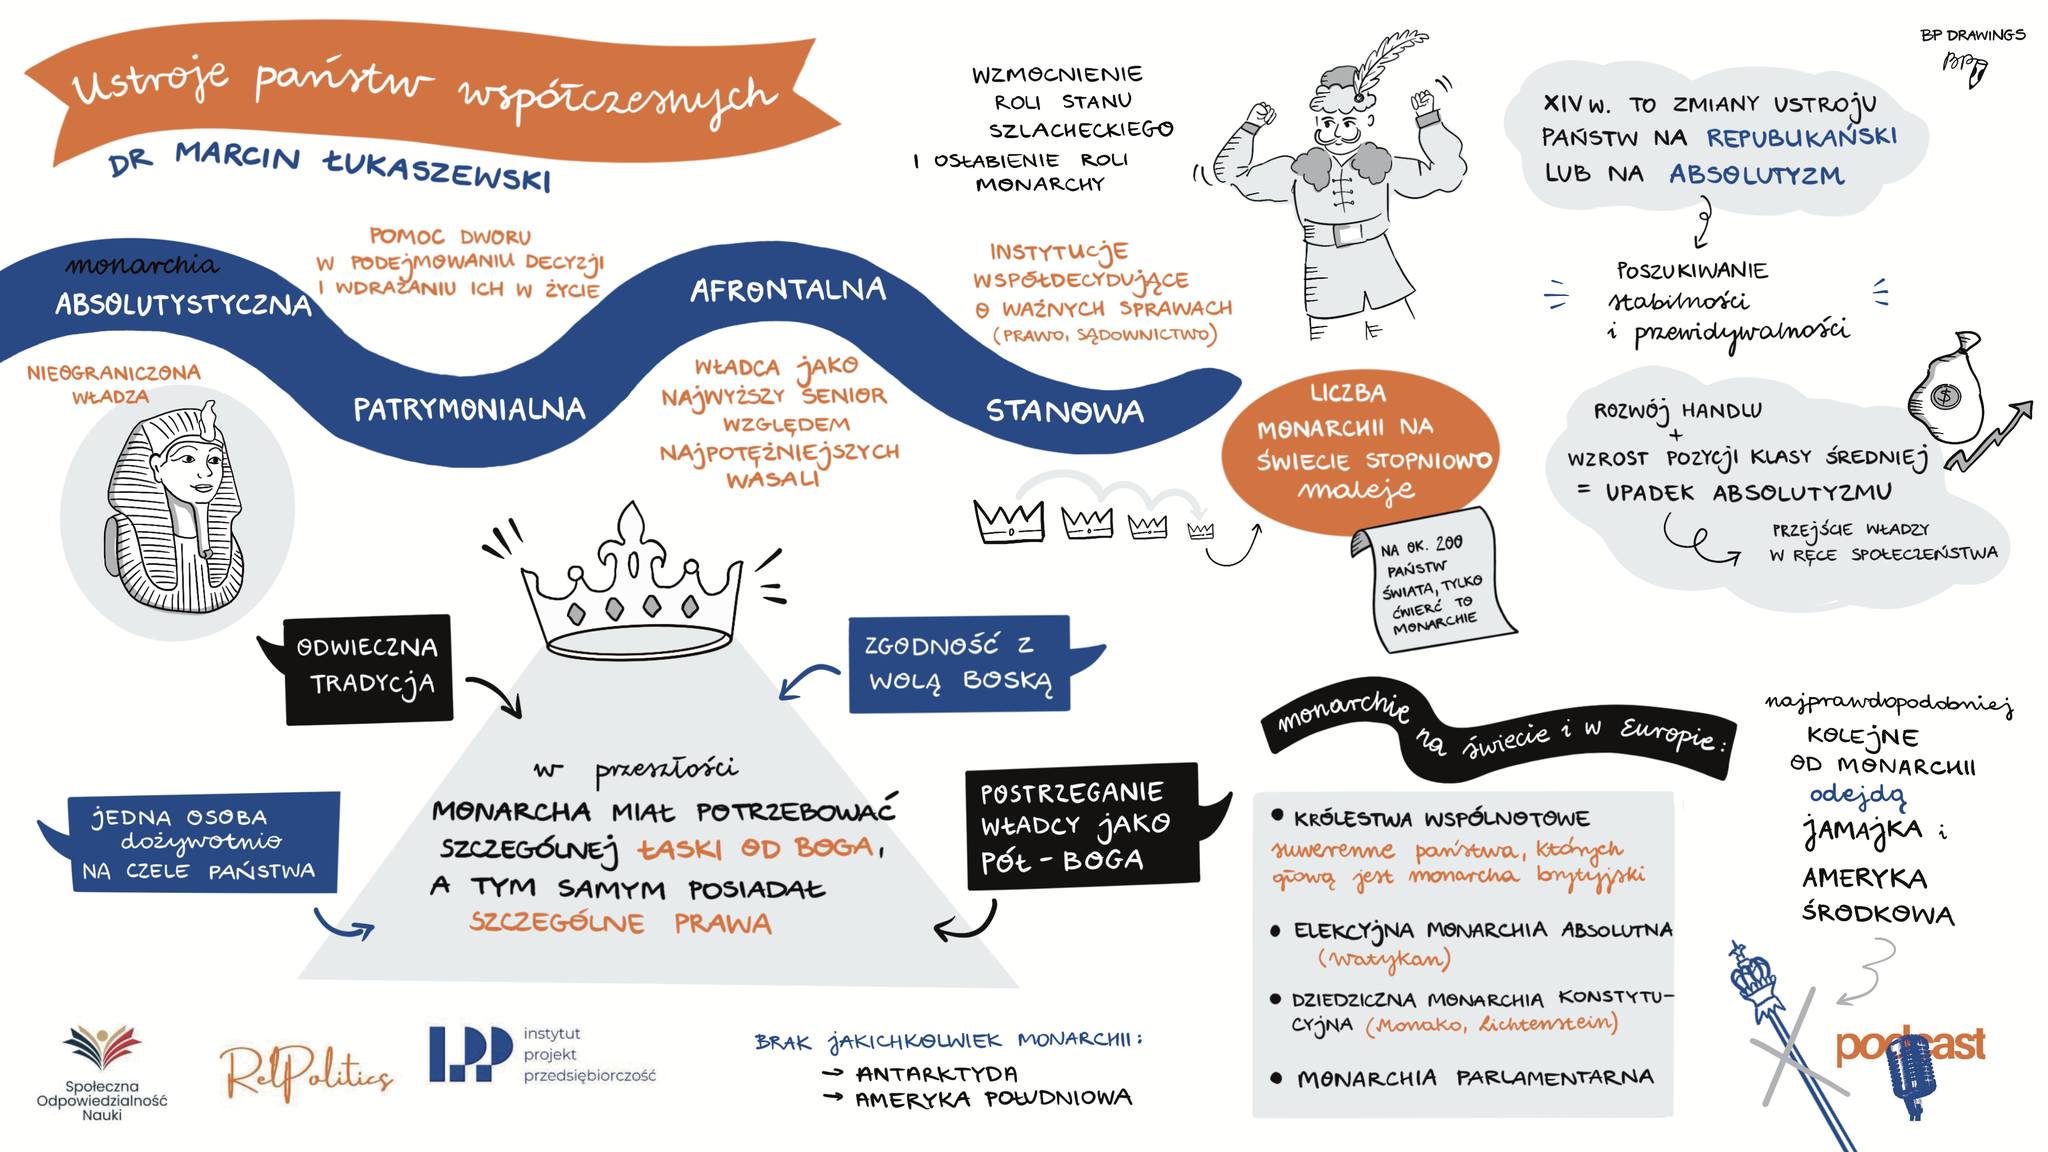 Ustroje państw współczesnych
DR MARCIN ŁUKASZEWSKI
monarchia
ABSOLUTYSTYCZNA
NIEOGRANICZONA
WŁADZA
POMOC DWORU
W PODEJMOWANIU DECYZJI
I WDRAŻANIU ICH W ŻYCIE
PATRYMONIALNA
AFRONTALNA
WŁADCA JAKO
NAJWYŻSZY SENIOR
WZGLĘDEM
NAJPOTĘŻNIEJSZYCH
WASALI
WZMOCNIENIE
ROLI STANU
SZLACHECKIEGO
I OSŁABIENIE ROLI
MONARCHY
INSTYTUCJE
WSPÓŁDECYDUJĄCE
O WAŻNYCH SPRAWACH
(PRAWO, SĄDOWNICTWO)
STANOWA
LICZBA
MONARCHII NA
ŚWIECIE STOPNIOWO
maleje
NA OK. 200
PAŃSTW
ŚWIATA, TYLKO
ĆWIERĆ TO
MONARCHIE
BP DRAWINGS
BP
XIV w. TO ZMIANY USTROJU
PAŃSTW NA REPUBLIKAŃSKI
LUB NA ABSOLUTYZM
POSZUKIWANIE
stabilności
i przewidywalności
ROZWÓJ HANDLU
+
WZROST POZYCJI KLASY ŚREDNIEJ
= UPADEK ABSOLUTYZMU
PRZEJŚCIE WŁADZY
W RĘCE SPOŁECZEŃSTWA
ODWIECZNA
TRADYCJA
ZGODNOŚĆ Z
WOLĄ BOSKĄ
JEDNA OSOBA
dożywotnio
NA CZELE PAŃSTWA
POSTRZEGANIE
WŁADCY JAKO
PÓŁ-BOGA
w przeszłości
MONARCHA MIAŁ POTRZEBOWAĆ
SZCZEGÓLNEJ ŁASKI OD BOGA,
A TYM SAMYM POSIADAŁ
SZCZEGÓLNE PRAWA
monarchie na świecie i w Europie:
• KRÓLESTWA WSPÓLNOTOWE
suwerenne państwa, których
głową jest monarcha brytyjski
• ELEKCYJNA MONARCHIA ABSOLUTNA
(Watykan)
• DZIEDZICZNA MONARCHIA KONSTYTU-
CYJNA (Monako, Lichtenstein)
• MONARCHIA PARLAMENTARNA
najprawdopodobniej
KOLEJNE
OD MONARCHII
odejdą
JAMAJKA i
AMERYKA
ŚRODKOWA
BRAK JAKICHKOLWIEK MONARCHII:
→ ANTARKTYDA
→ AMERYKA POŁUDNIOWA
Społeczna
Odpowiedzialność
Nauki
RelPolitics
IPP
instytut
projekt
przedsiębiorczość
podcast